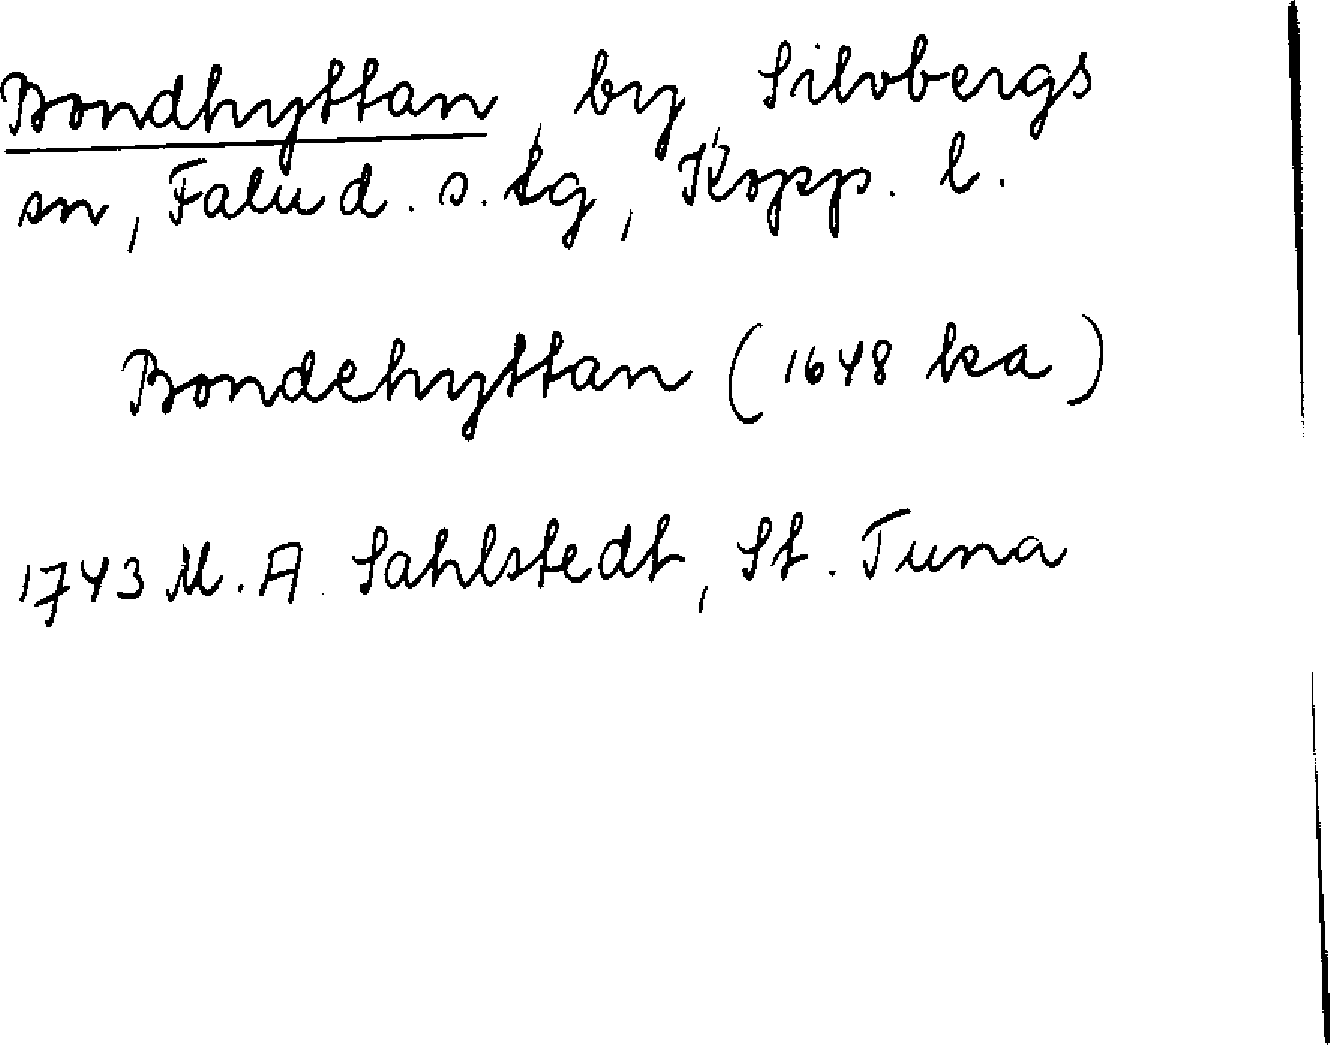 Bondhyttan, by, Silvbergs
sn, Falu d. s. tg, Kopp. l.
Bondehyttan (1648 ka)
1743 M. A. Sahlstedt, St. Tuna